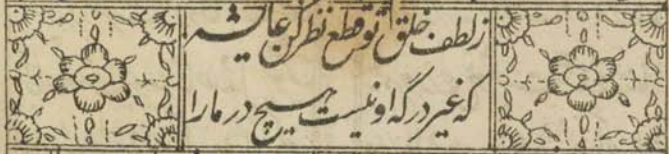 ز لطف خلق تو قطع نظر کن عایشه
که غیر درگه او نیست هیچ در ما را